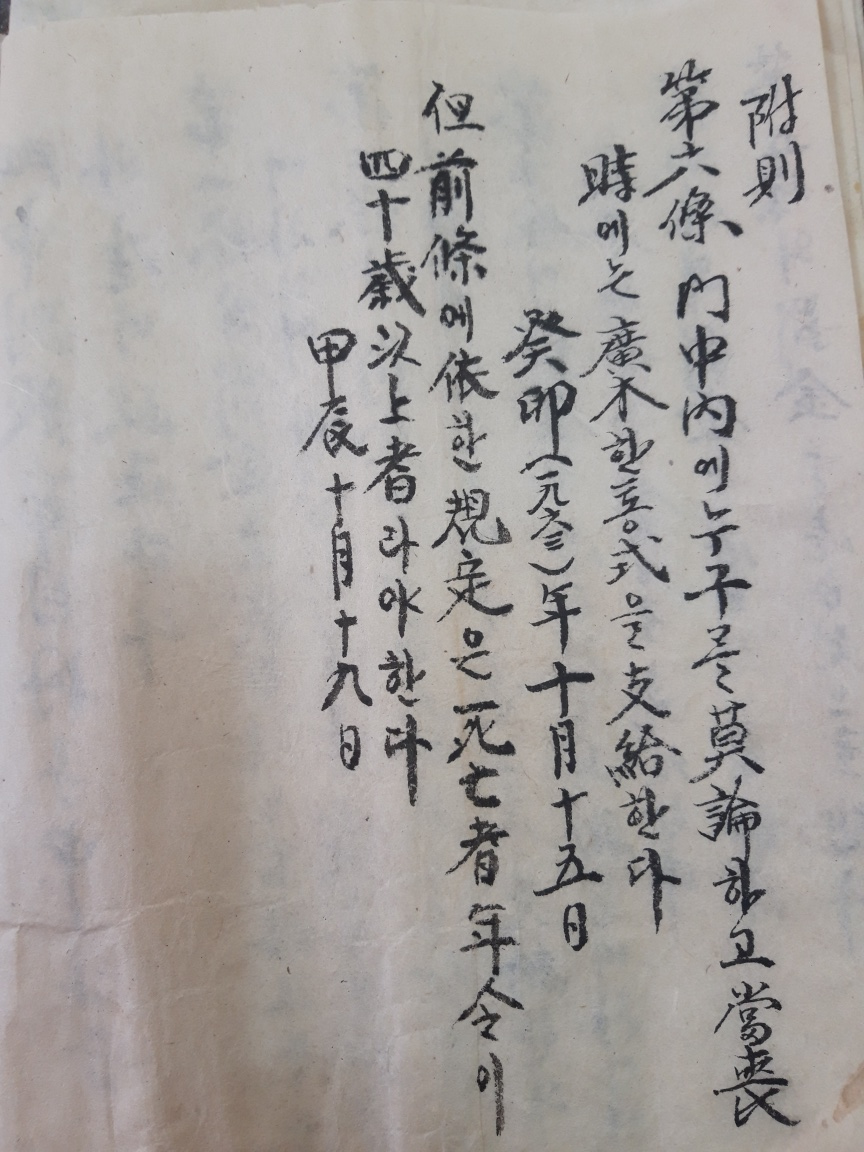 附則
第六條 門中內에누구를莫論하고當喪
時에는廣木한통式을支給한다
癸卯(一九六三)年十月十五日
但前條에依한規定은死亡者年令이
四十歲以上者라야한다
甲辰十月十九日